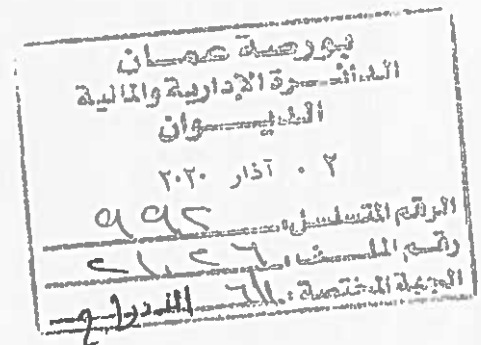 بورصة عمان
الدائرة الإدارية والمالية
الديوان
٠٢ آذار ٢٠٢٠
الرقم المتسلسل: ٩٩٢
رقم الملف: ٢١٠٢٦
الجهة المختصة: